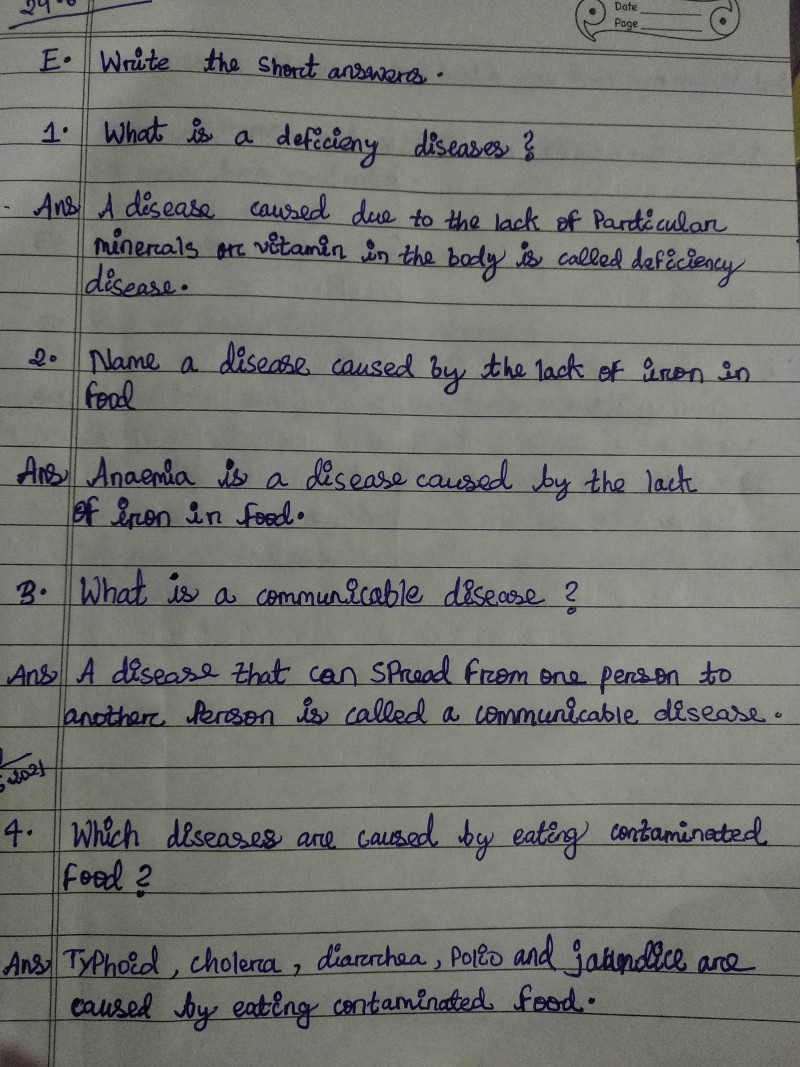 Date
Page
E. Write the short answers.
1. What is a deficieny diseases ?
Ans A disease caused due to the lack of Particular
minerals or vitamin in the body is called deficiency
disease.
2. Name a disease caused by the lack of iron in
food
Ans Anaemia is a disease caused by the lack
of iron in food.
3. What is a communicable disease ?
Ans A disease that can spread from one person to
another person is called a communicable disease.
2021
4. Which diseases are caused by eating contaminated
food ?
Ans Typhoid, cholera, diarrhea, Polio and jaundice are
caused by eating contaminated food.